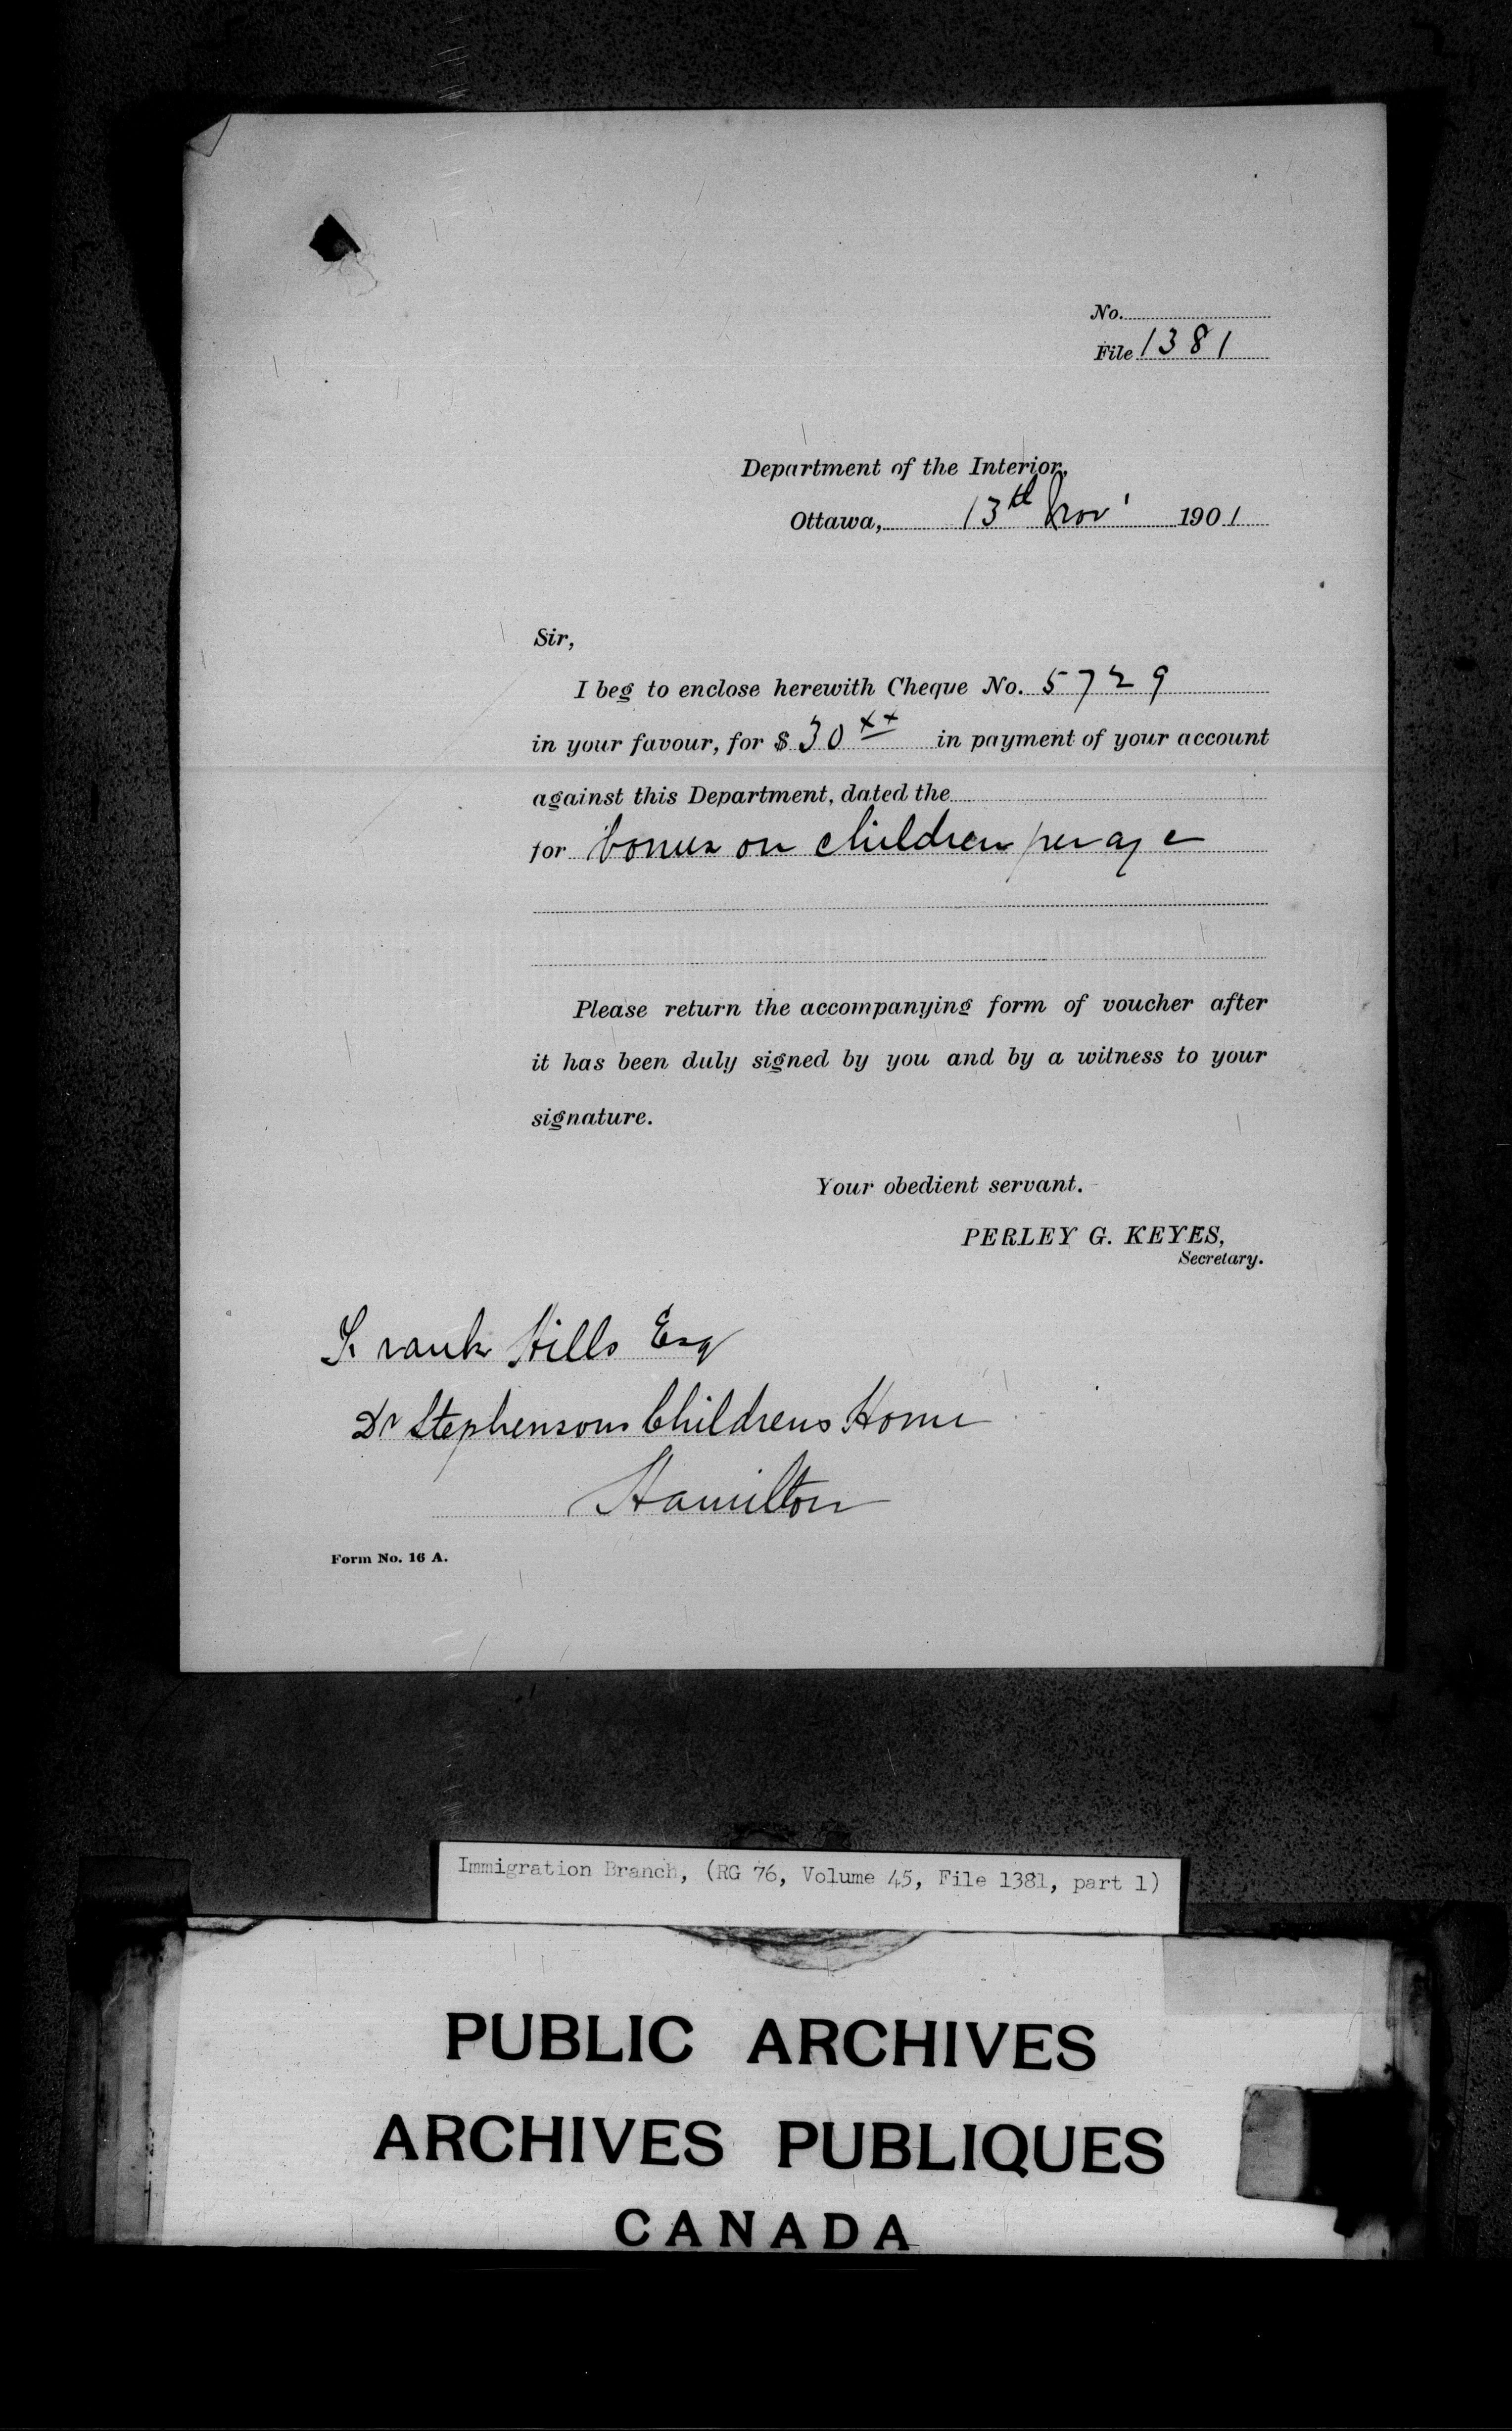 No.
File 1381
Department of the Interior,
Ottawa, 13th Nov' 1901
Sir,
I beg to enclose herewith Cheque No. 5729
in your favour, for $ 30 xx in payment of your account
against this Department, dated the
for bonus on children per
Please return the accompanying form of voucher after
it has been duly signed by you and by a witness to your
signature.
Your obedient servant.
PERLEY G. KEYES,
Secretary.
Frank Hills Esq
Dr Stephensons Childrens Home
Hamilton
Form No. 16 A.
Immigration Branch, (RG 76, Volume 45, File 1381, part 1)
PUBLIC ARCHIVES
ARCHIVES PUBLIQUES
CANADA